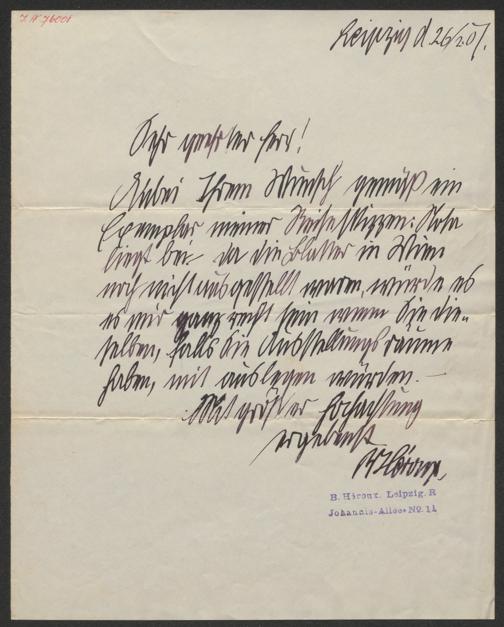 J. N. 76001
Leipzig d 26/2.07.
Sehr geehrter Herr!
Anbei Ihrem Wunsch gemäß ein
Exemplar meiner Reiseskizzen: Nota
liegt bei – da die Blätter in Wien
noch nicht ausgestellt waren, würde es
es mir ganz recht sein wenn Sie die-
selben, falls Sie Ausstellungsräume
haben, mit auslegen würden. –
Mit größter Hochachtung
ergebenst
B Héroux.
B. Héroux. Leipzig. R
Johannis-Allee No. 11